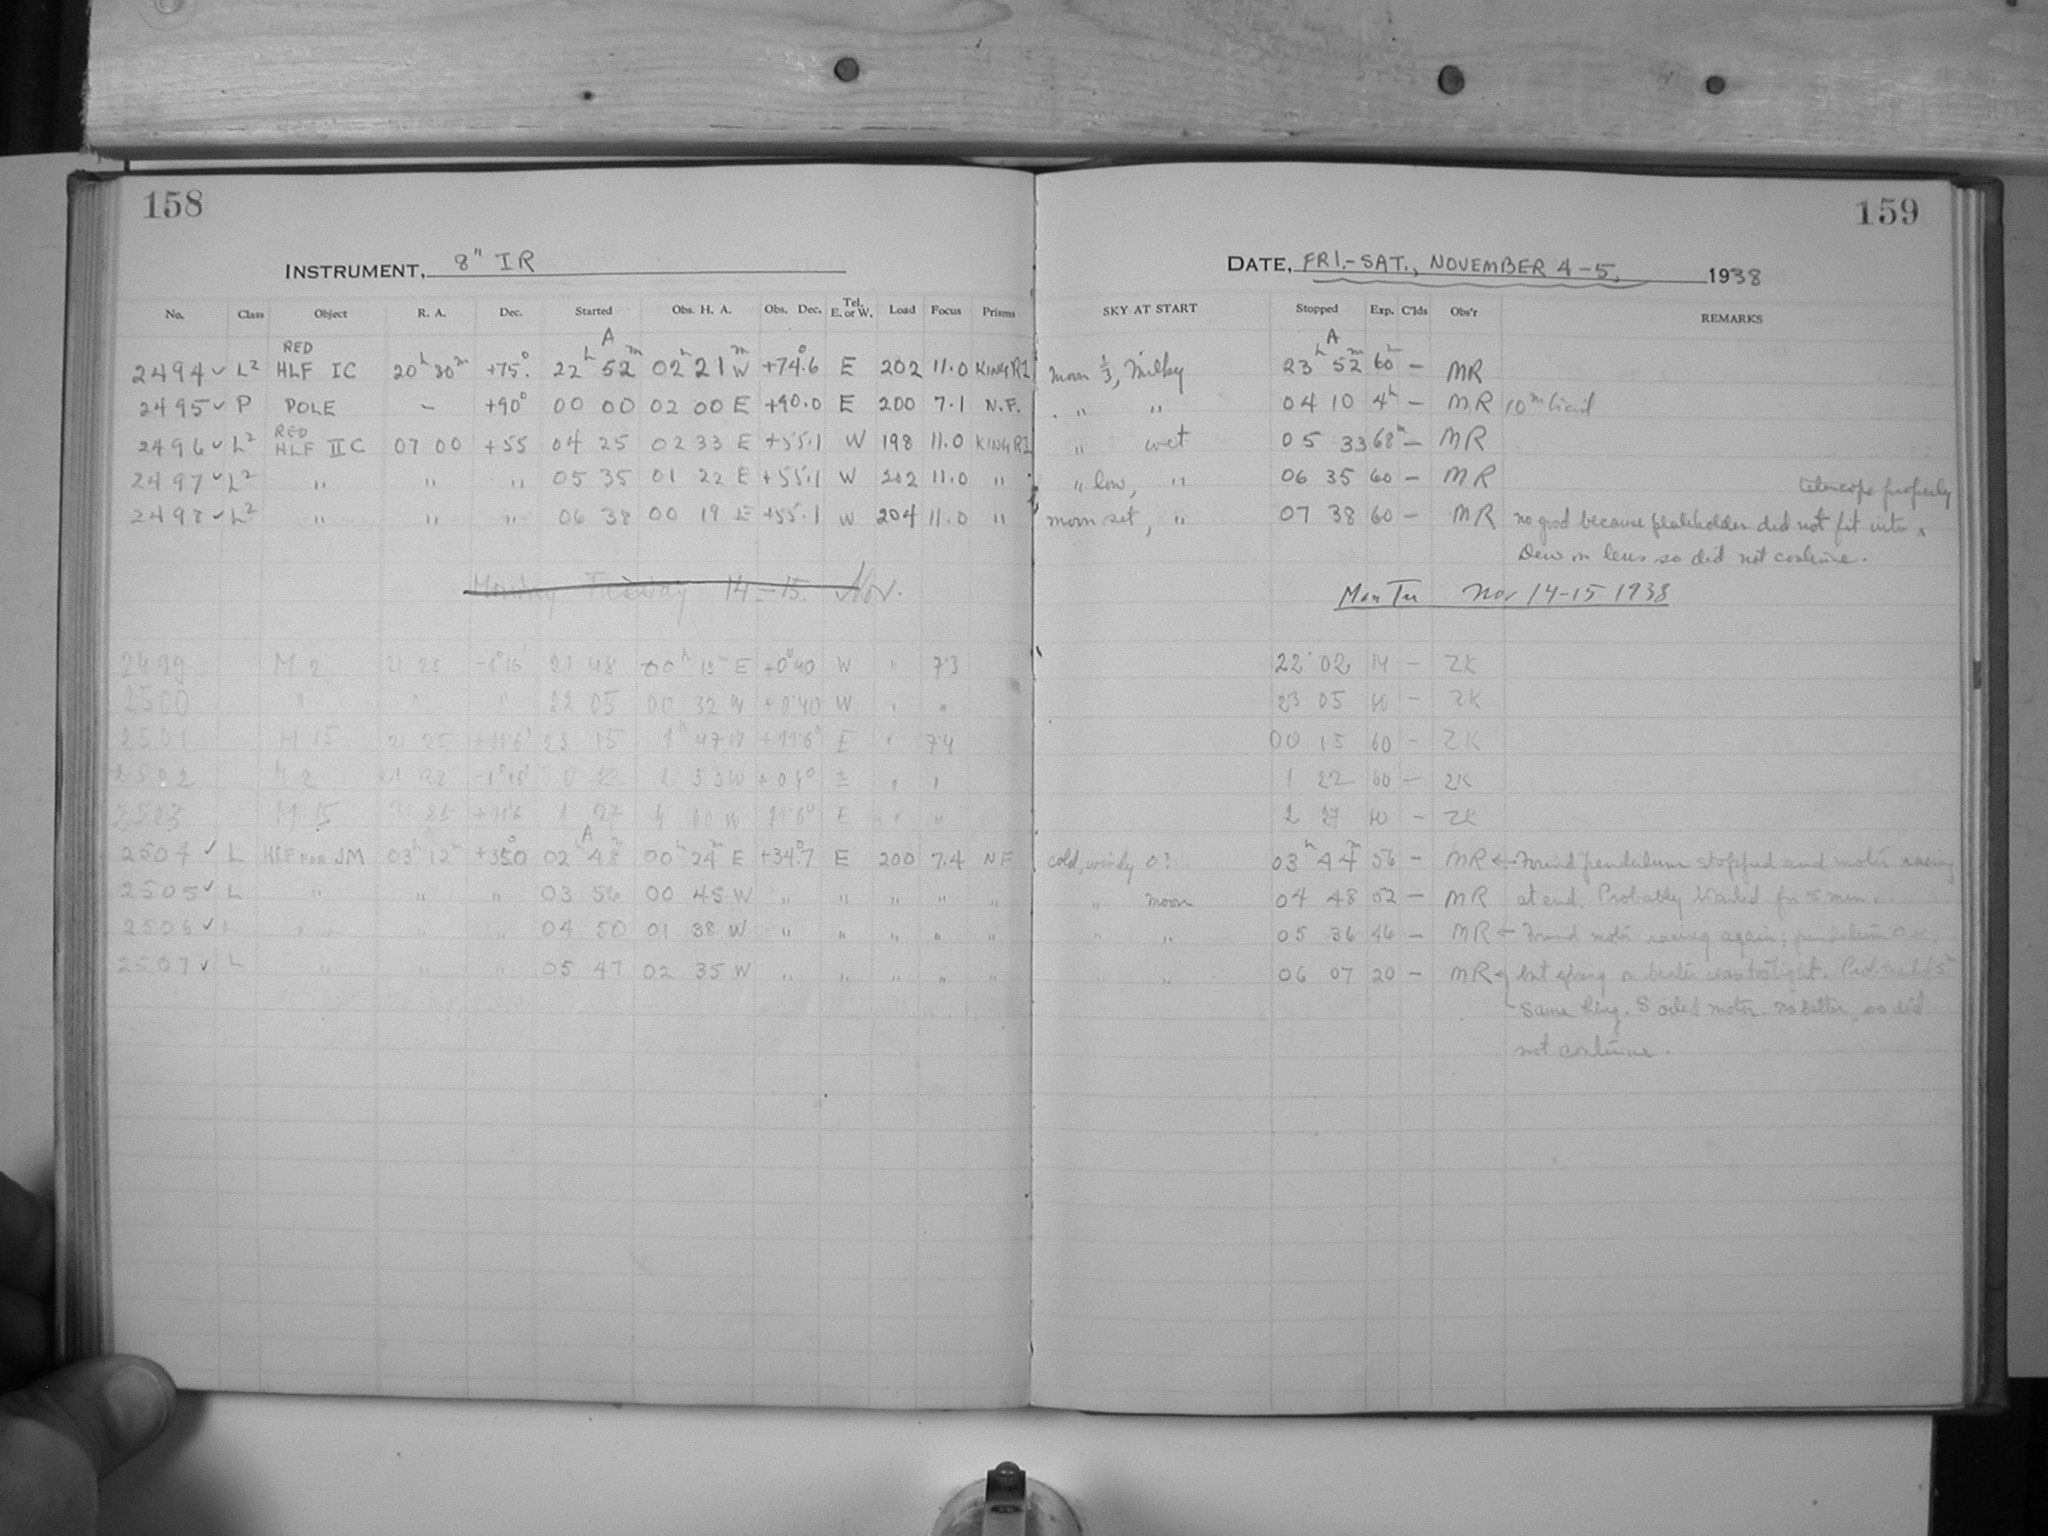 158
159
INSTRUMENT, 8" IR
DATE, FRI.-SAT., NOVEMBER 4-5, 1938
No. Class Object R. A. Dec. Started Obs. H. A. Obs. Dec. Tel. E. or W. Load Focus Prisms SKY AT START Stopped Exp. C'lds Obs'r REMARKS
RED A A
2494 ✓ L² HLF IC 20h 30m +75° 22h 52m 02h 21m W +74°.6 E 202 11.0 KING RI moon ⅓, milky 23h 52m 60m - MR
2495 ✓ P POLE - +90° 00 00 02 00 E +90.0 E 200 7.1 N.F. " " 04 10 4h - MR 10m trail
RED
2496 ✓ L² HLF IIC 07 00 +55 04 25 02 33 E +55.1 W 198 11.0 KING RI " wet 05 33 68m - MR
2497 ✓ L² " " " 05 35 01 22 E +55.1 W 202 11.0 " " low, " 06 35 60 - MR telescope properly
2498 ✓ L² " " " 06 38 00 19 E +55.1 W 204 11.0 " moon set, " 07 38 60 - MR no good because plateholder did not fit into ^
Dew on lens so did not continue.
Monday Tuesday 14-15. Nov.
Mon Tu Nov 14-15 1938
2499 M 2 21 28 -1°16' 21 48 00h 15m E +0°40 W " 7.3 22 02 14 - ZK
2500 " " " 22 05 00 32 W +0°40 W " " 23 05 60 - ZK
2501 M 15 21 25 23 15 1h 47 W E " 7.4 00 15 60 - ZK
2502 M 2 21 28 -1°16' 0 22 2 53 W E " " 1 22 60 - ZK
2503 M 15 21 25 1 27 4 00 W E " " 2 27 60 - ZK
A
2504 ✓ L HLF FOR JM 03h 12m +35°.0 02h 48m 00h 24m E +34°.7 E 200 7.4 NF cold, windy 0? 03h 44m 56 - MR ← Found pendulum stopped and motor racing
2505 ✓ L " " " 03 56 00 45 W " " " " " " moon 04 48 52 - MR at end. Probably trailed for 5 min.
2506 ✓ L " " 04 50 01 38 W " " " " " " " 05 36 46 - MR ← Found motor racing again; pendulum O.K.
2507 ✓ L " " " 05 47 02 35 W " " " " " " " 06 07 20 - MR but spring on beater was too tight. Prob. trailed 5m
Same thing. I oiled motor. No better, so did
not continue.